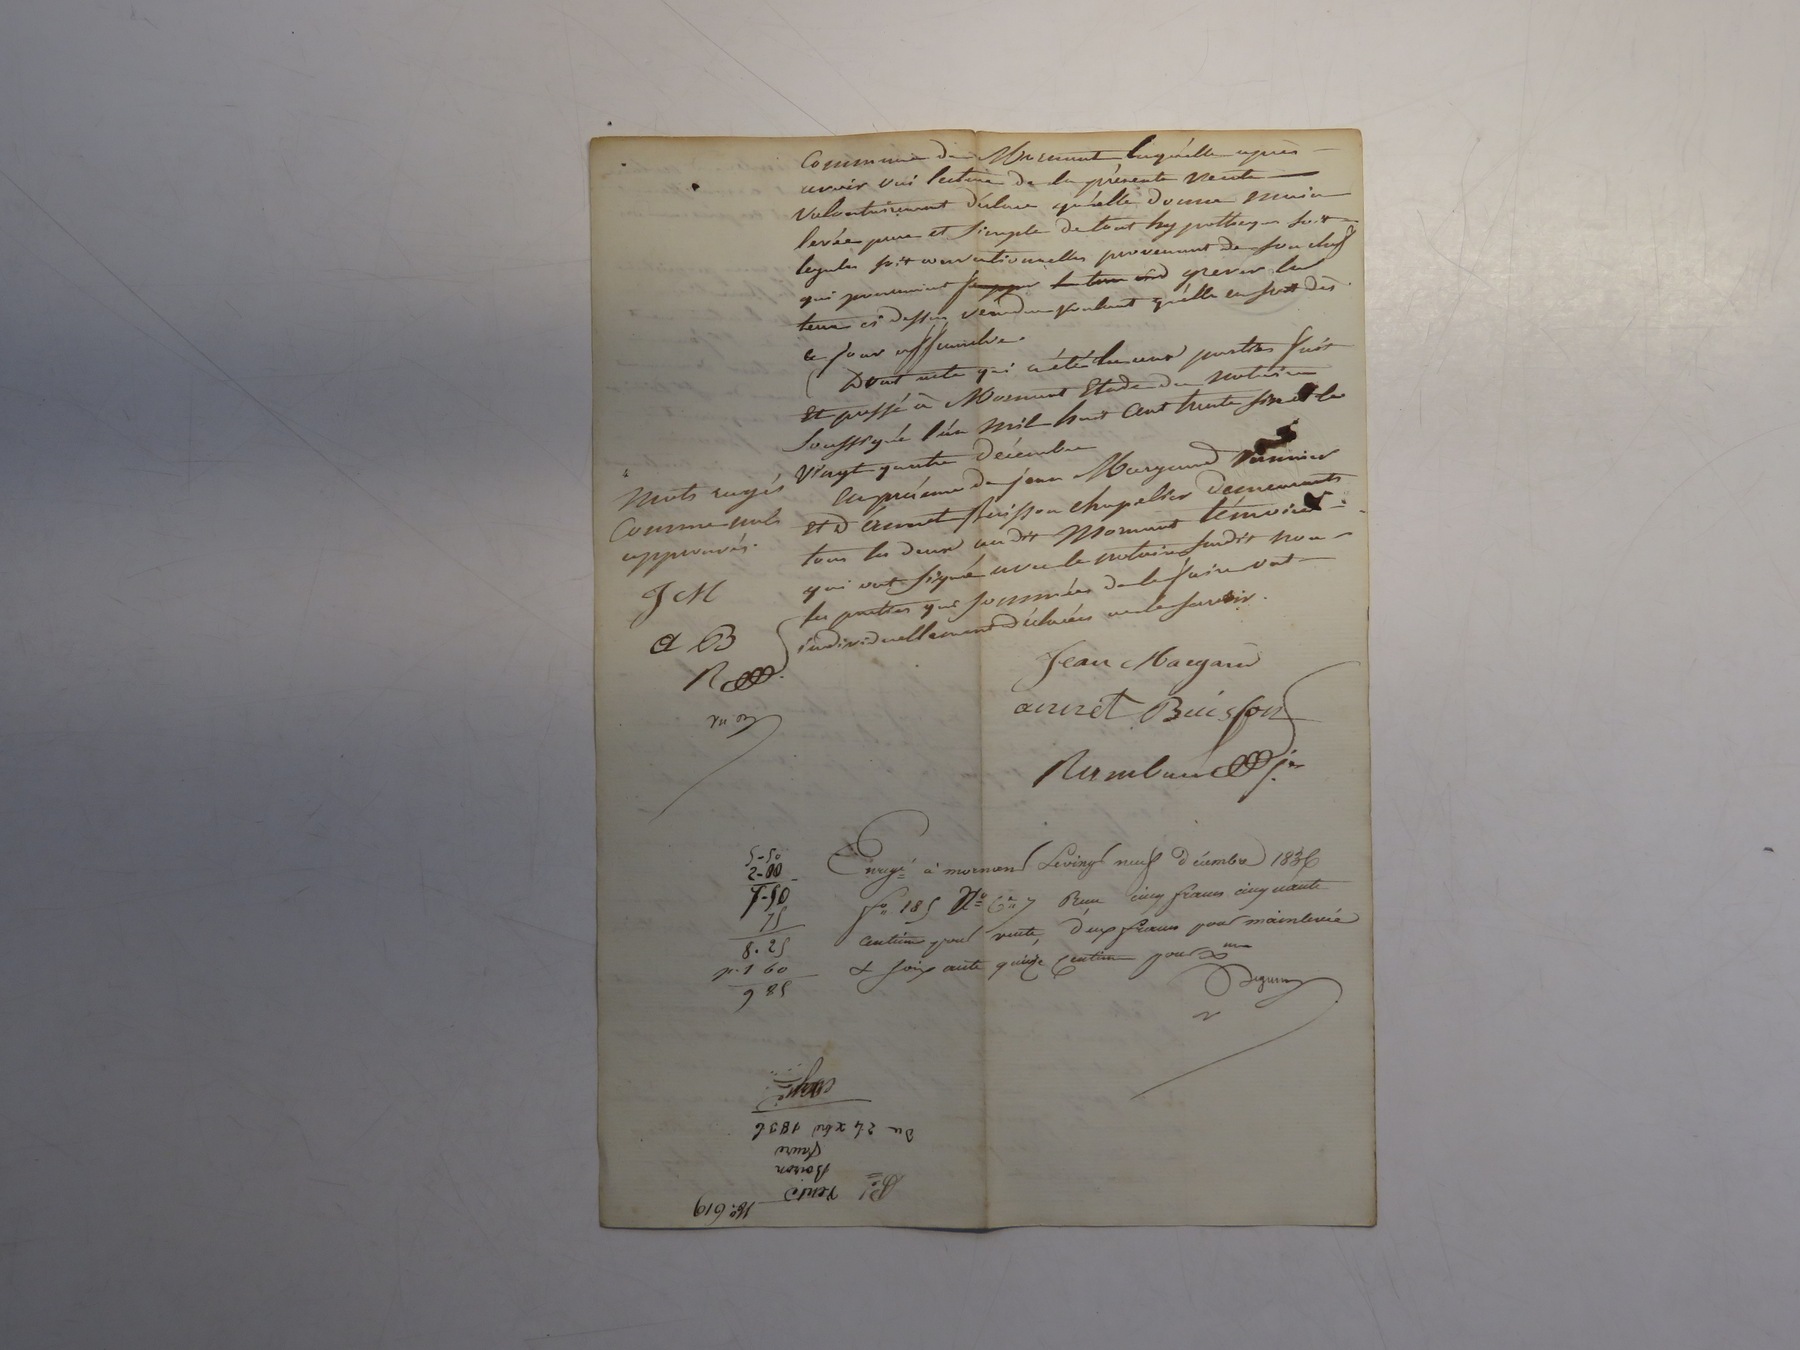 Commune de Mornant laquelle après
avoir oui lecture de la présente vente
volontairement déclare qu'elle donne main
levée pure et simple de tout hypothèque soit
légales soit conventionnelles provenant de son chef
qui pourraient frapper la terre grever la
terre ci dessus vendue voulant qu'elle en soit dès
ce jour affranchie.
Dont acte qui a été lu aux parties fait
et passé à Mornant Etude du notaire
soussigné l'an mil huit cent trente six et le
vingt quatre décembre
En présence de Jean Margand
et d'Annet Buisson chapelier demeurants
tous les deux au dit Mornant témoins
qui ont signé avec le notaire susdit non
les parties qui sommées de le faire ont
individuellement déclarées ne le savoir.
4
mots rayés
comme nuls
approuvés.
J M
A B
R
Jean Margand
annet Buisson
Rambaud jne
5-50
2-00
7-50
75
8.25
p. 1 60
9 85
Enregé à mornant Le vingt neuf décembre 1836
fo 185 No Con 7 Reçu cinq francs cinquante
centimes pour vente, deux francs pour mainlevée
& soixante quinze centimes pour Xme
No. 619
Vente
Boiron
Faure
Du 24 xbre 1836